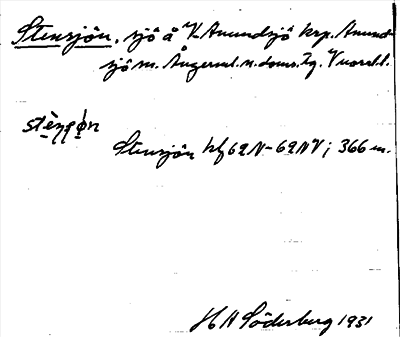 Stensjön, sjö å V. Anundsjö krp. Anund-
sjö sn. Ångerml. n. doms. Tg. V norrl.
stènʃǫ́n
Stensjön kbf 62N-62NV; 366 m.
H A Söderberg 1931